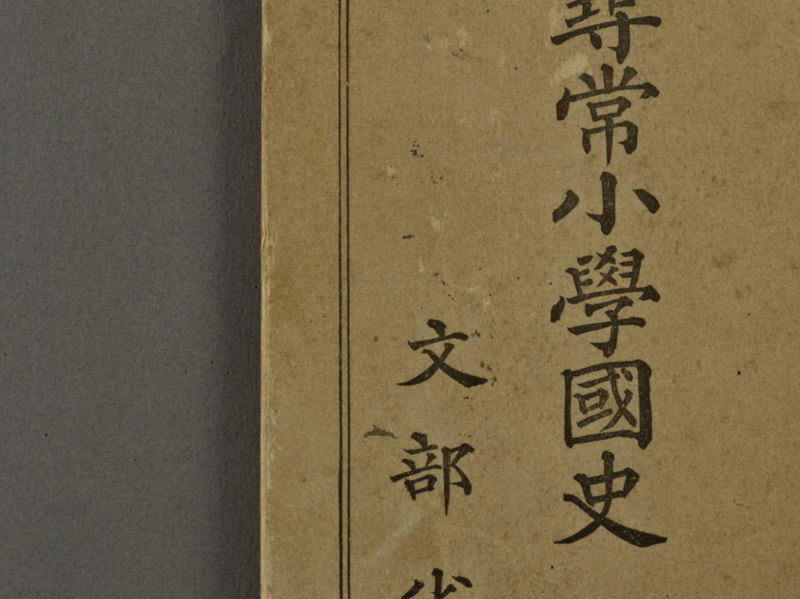 尋常小學國史
文部省